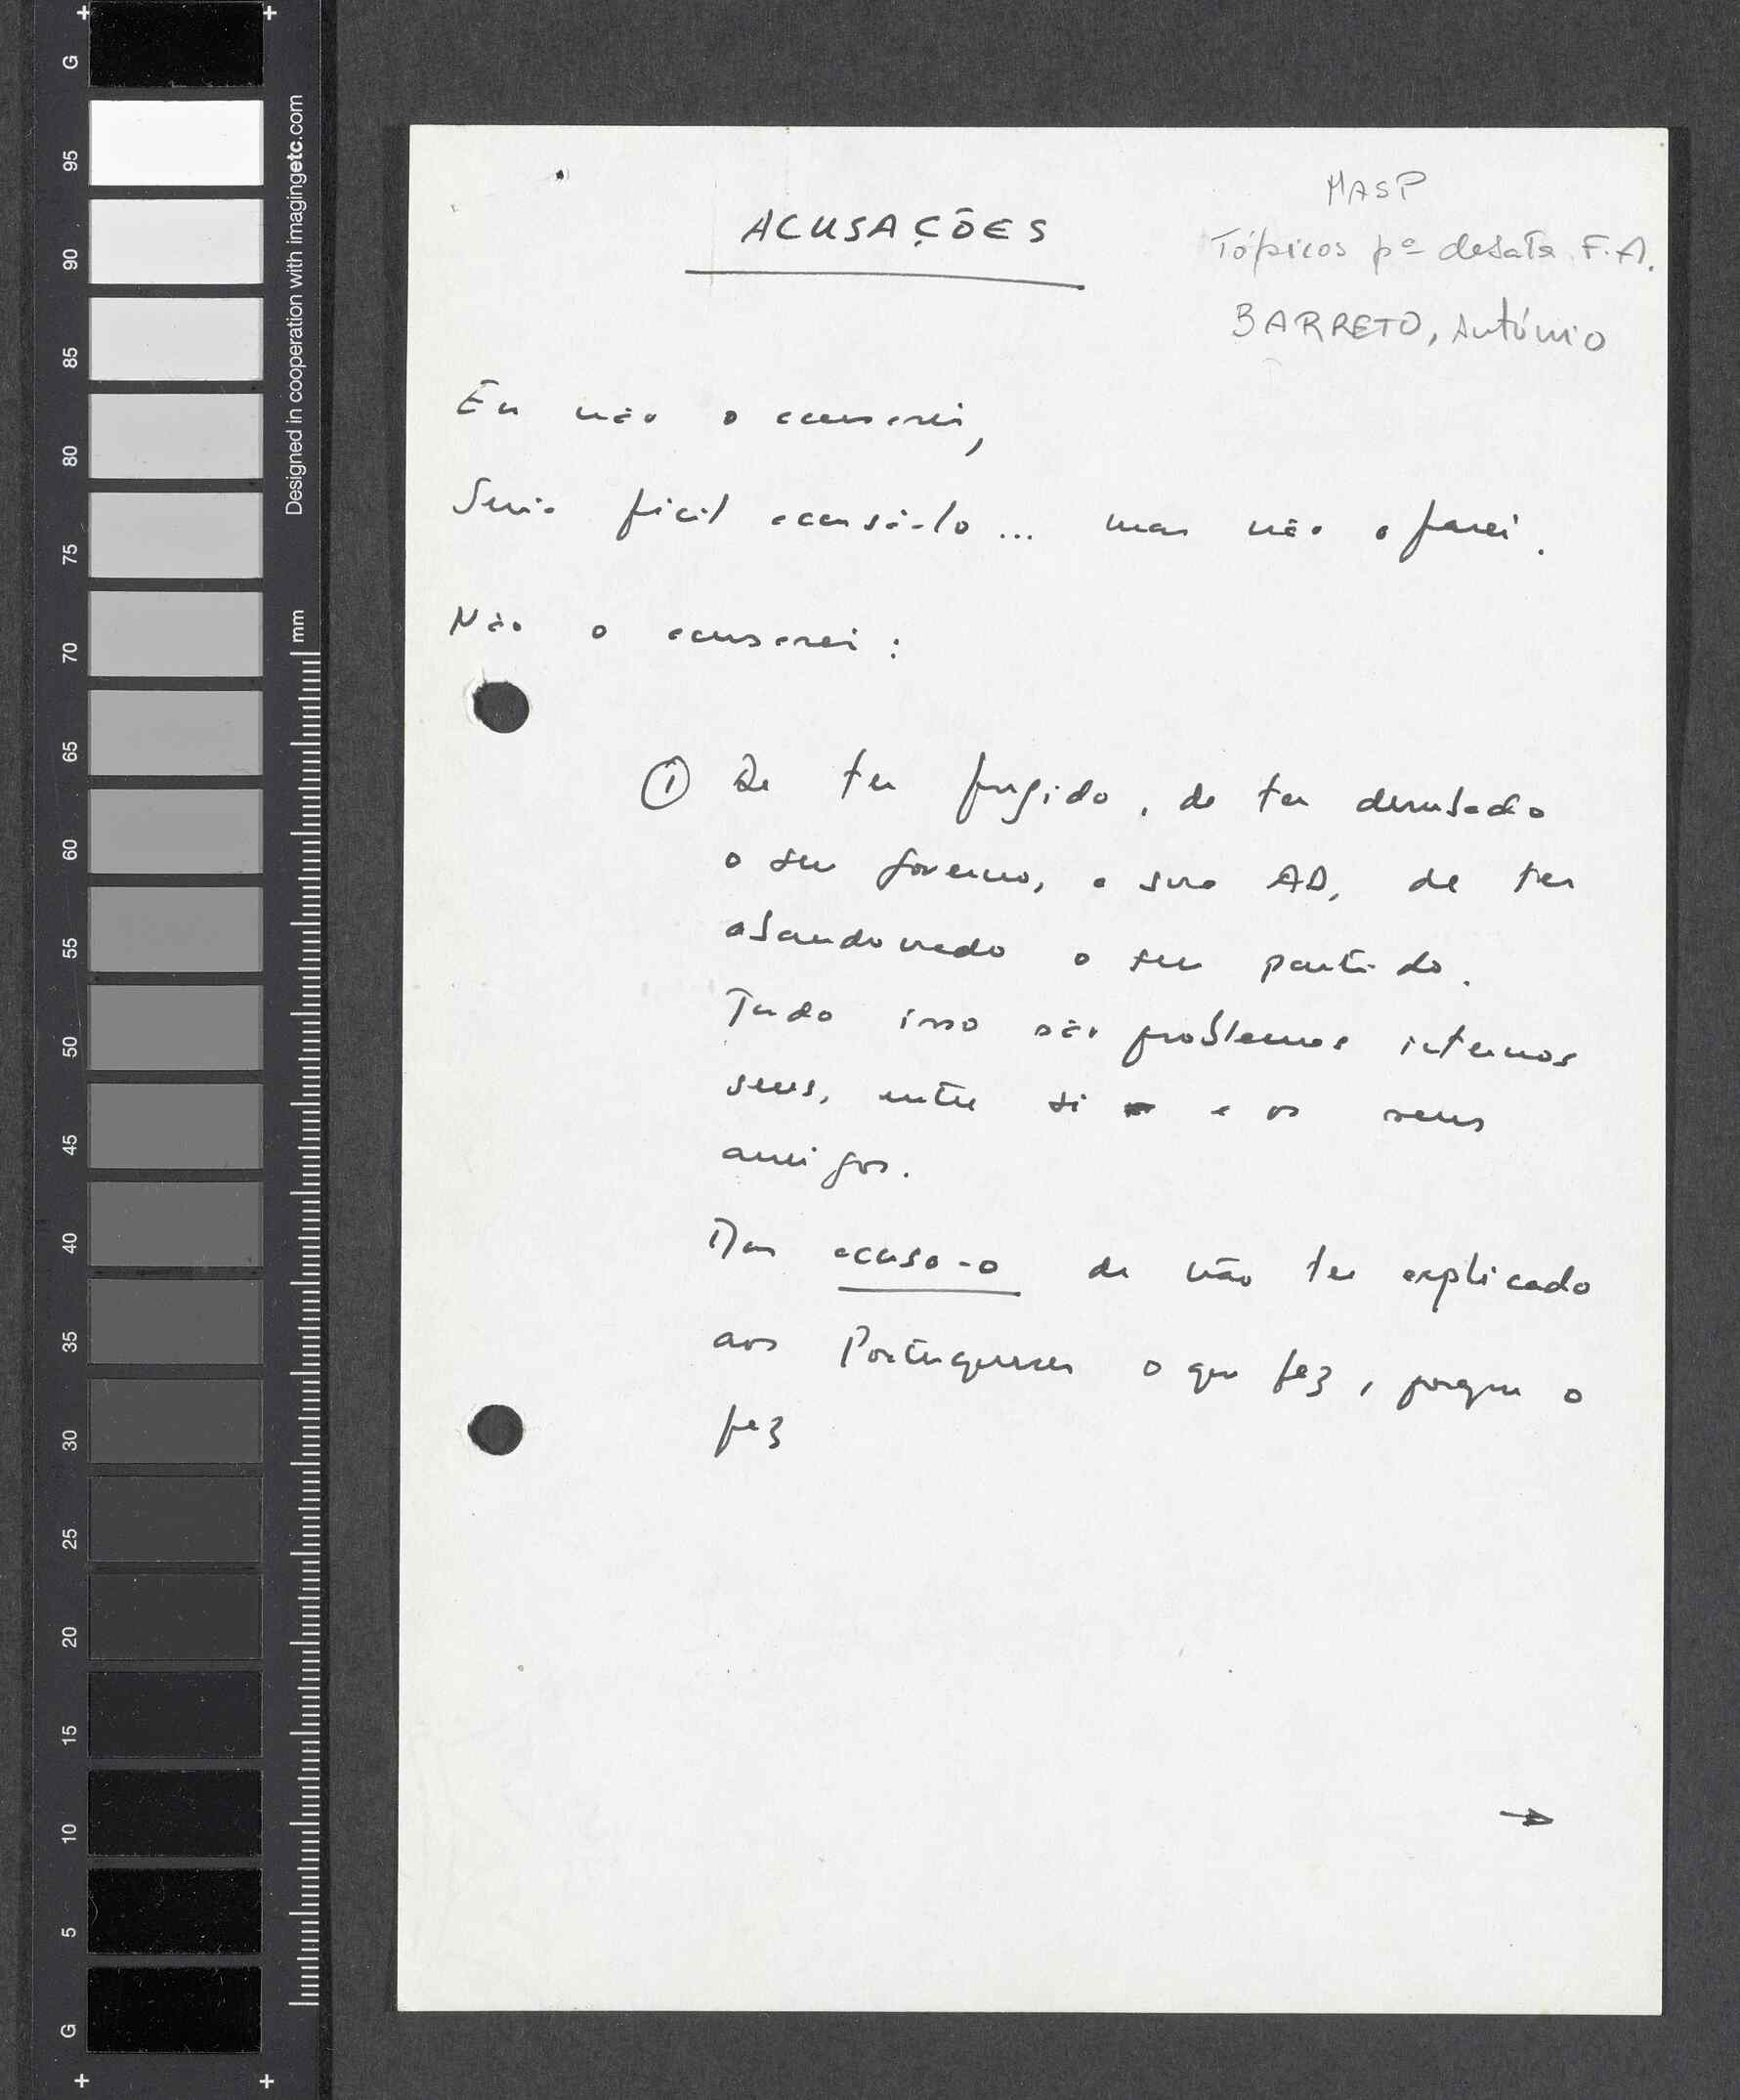 MASP
Tópicos pª debate F.A.
BARRETO, António
ACUSAÇÕES
Eu não o acusarei,
Seria fácil acusá-lo... mas não o farei.
Não o acusarei:
① De ter fugido, de ter derrubado
o seu governo, a sua AD, de ter
abandonado o seu partido.
Tudo isso são problemas internos
seus, entre si e os seus
amigos.
Mas acuso-o de não ter explicado
aos Portugueses o que fez, porque o
fez
→
G
95
90
85
80
75
70
65
60
55
50
45
40
35
30
25
20
15
10
5
G
Designed in cooperation with imagingetc.com
mm